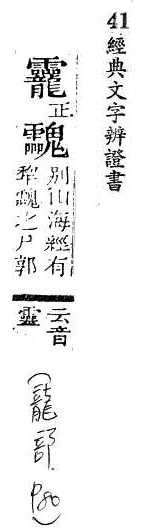 41 經典文字辨證書
龗正䰱別山海經有犁䰱之尸郭
云音靈
(龍部 P80)